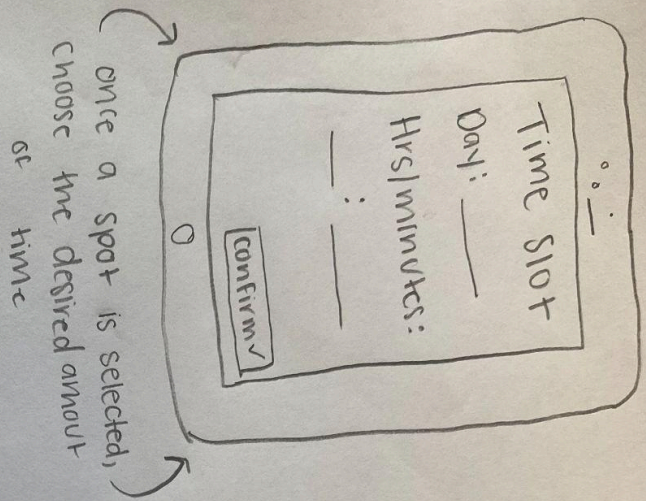 Time Slot
Day: ____
Hrs/minutes:
___ : ____
confirm ✓
once a spot is selected,
choose the desired amout
of time